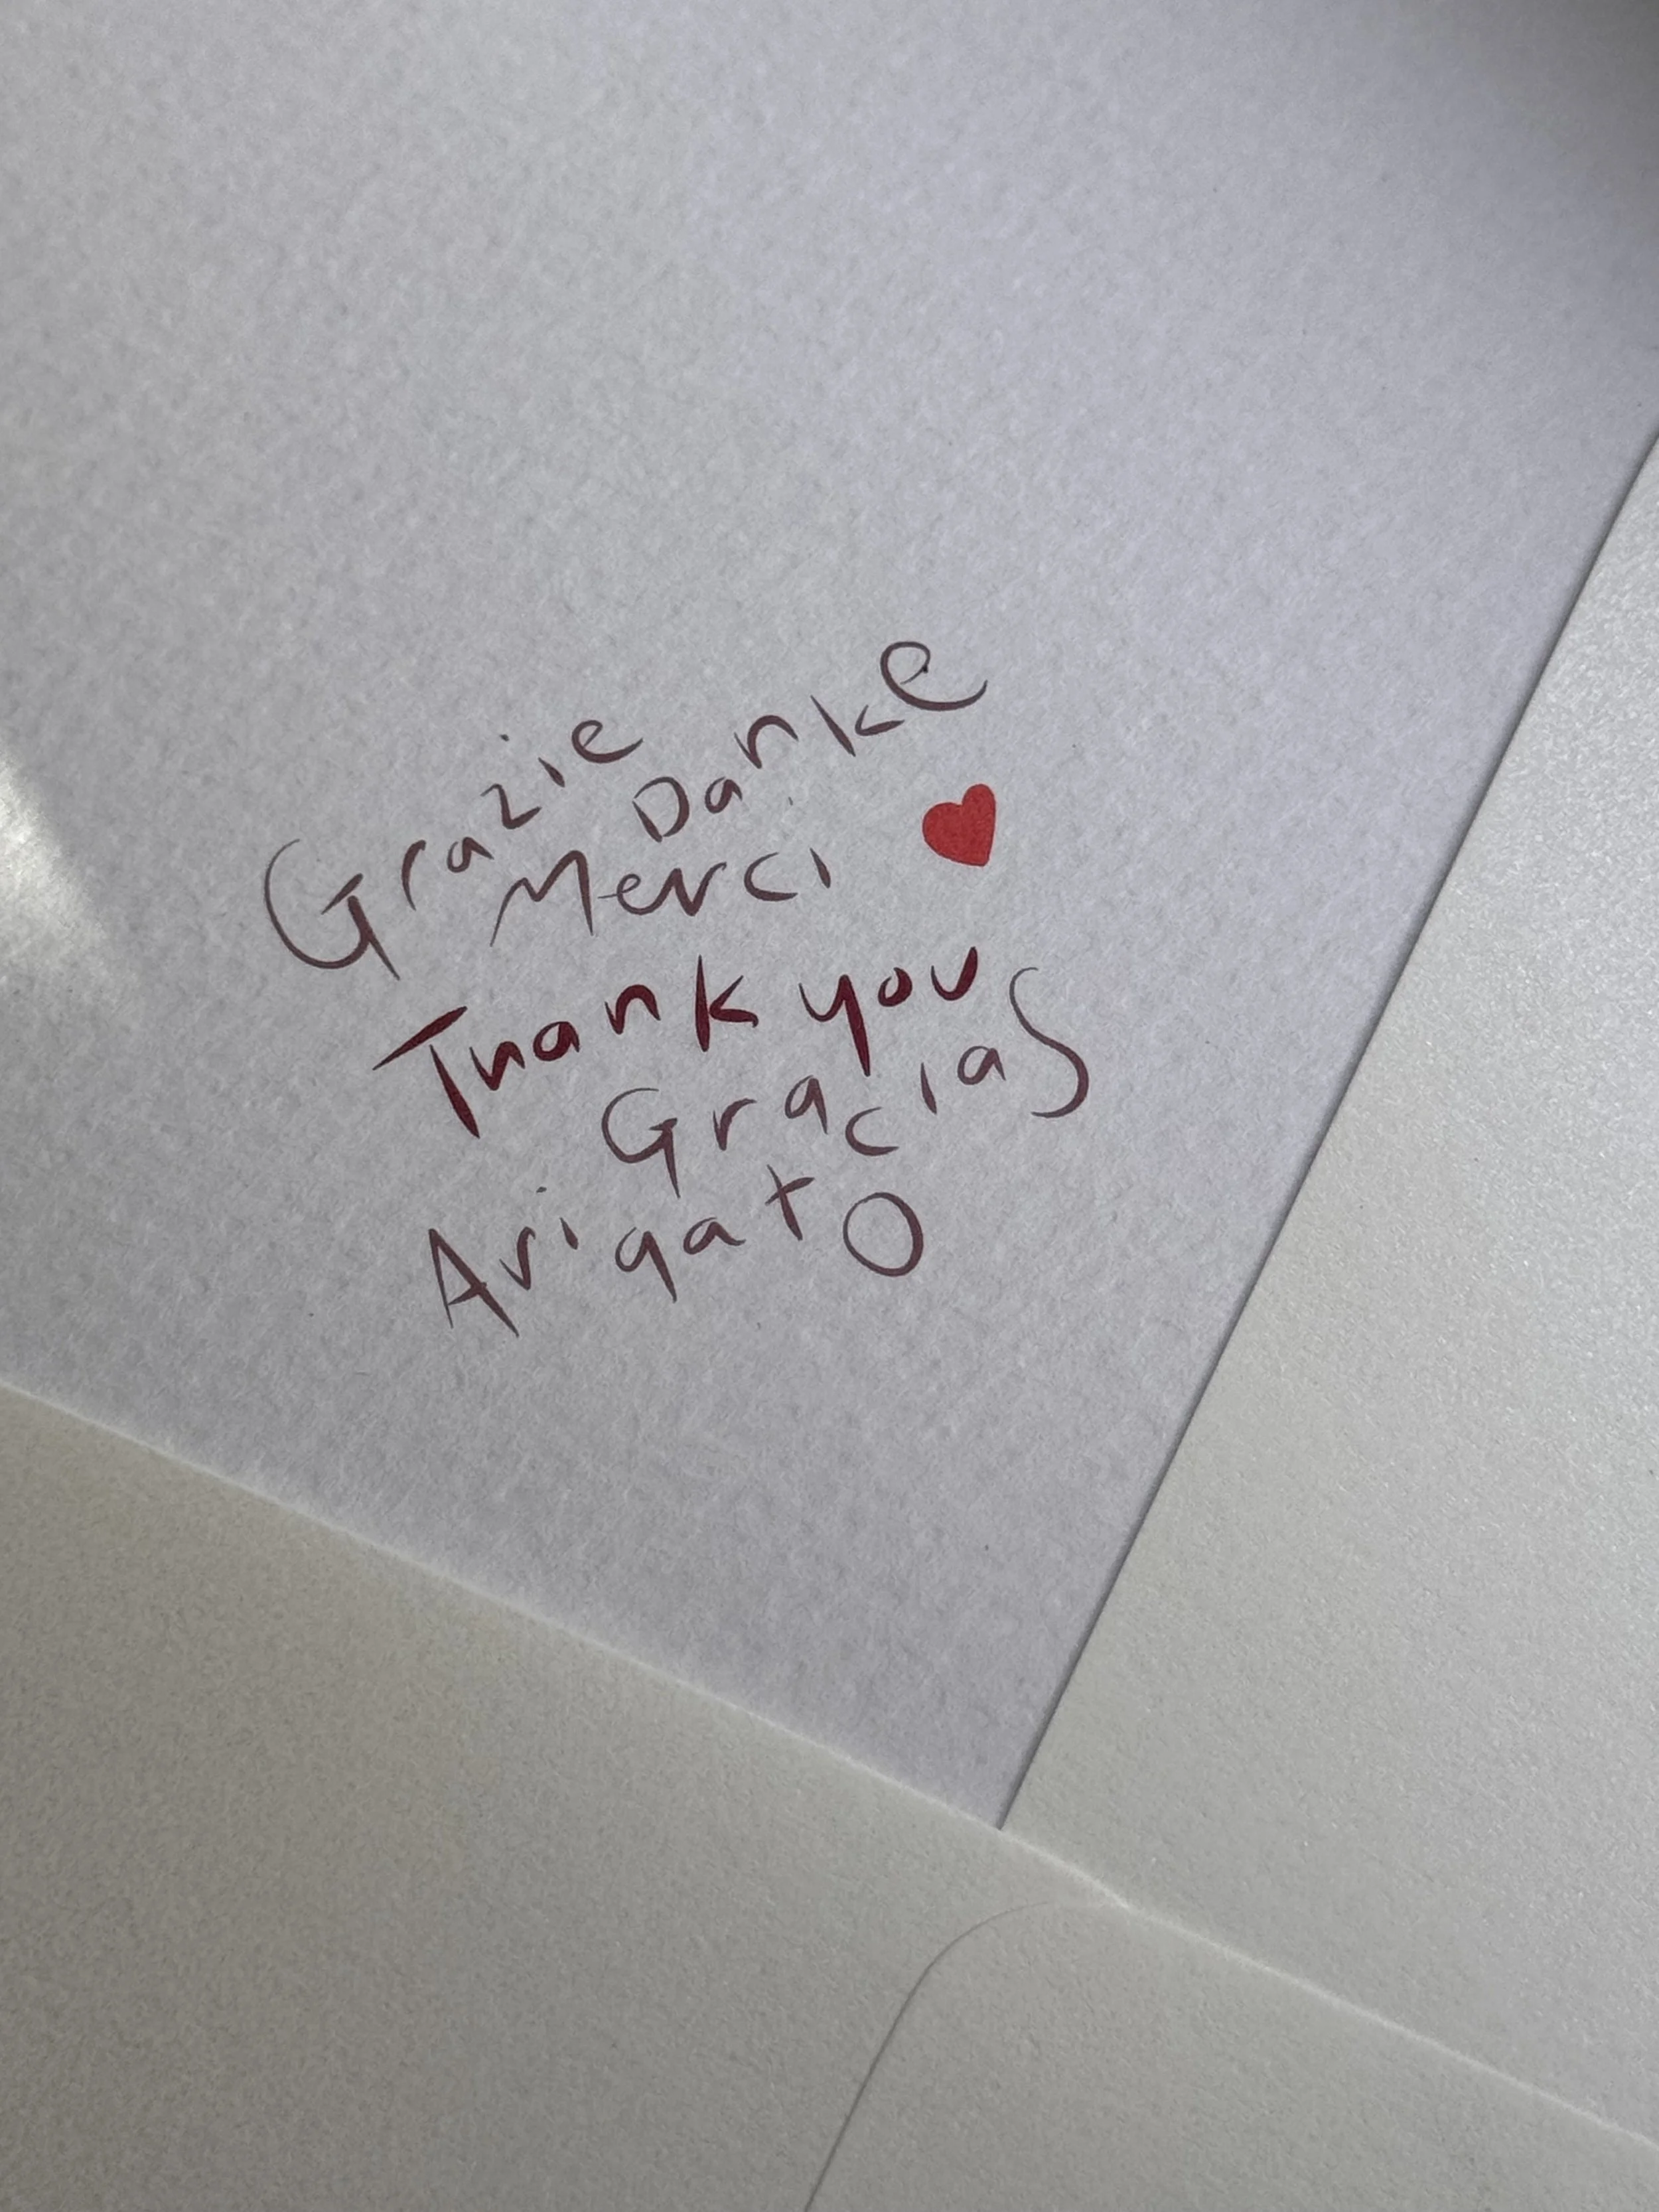 Grazie
Danke
Merci
Thank you
Gracias
Arigato